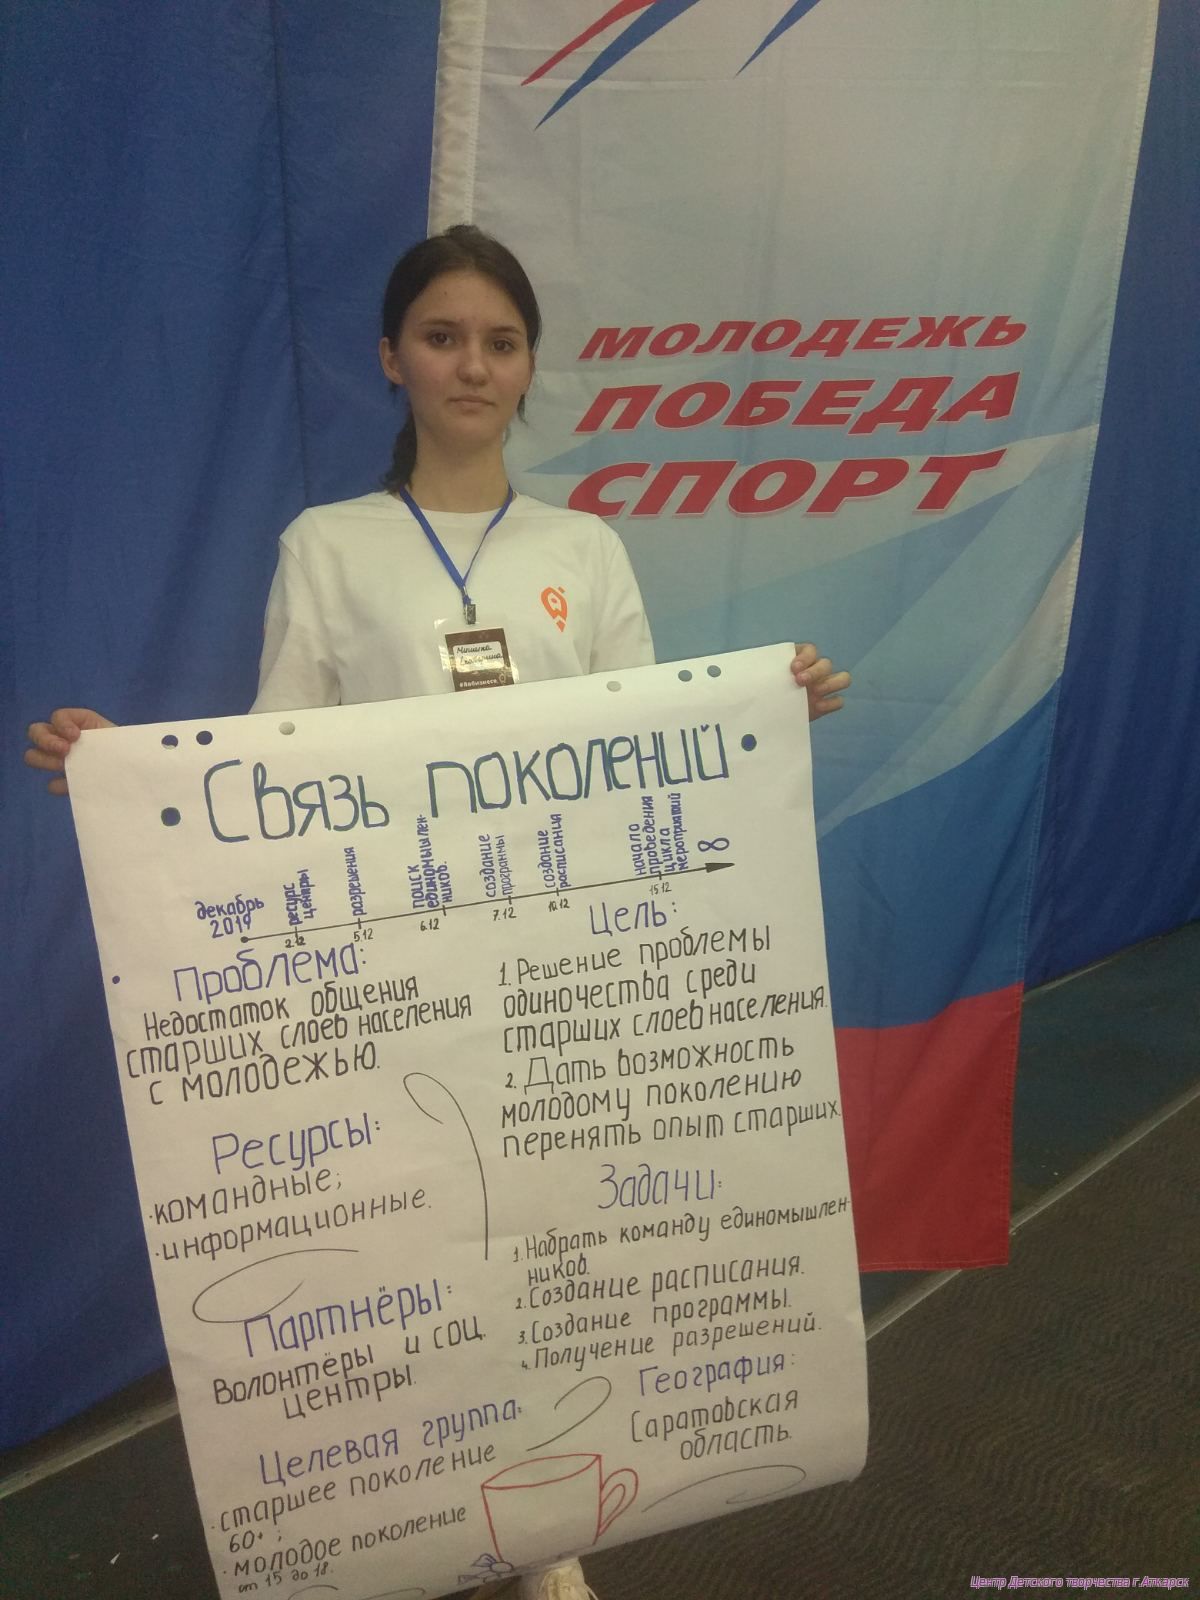 МОЛОДЕЖЬ
ПОБЕДА
СПОРТ
Екатерина
• Связь поколений •
декабрь
2019
ресурс
центры
разрешения
поиск
единомышлен-
ников.
создание
программы
создание
расписания
начало
проведения
цикла
мероприятий
∞
2.12
5.12
6.12
7.12
10.12
15.12
Проблема:
Недостаток общения
старших слоев населения
с молодежью.
Ресурсы:
·командные;
·информационные.
Партнёры:
Волонтёры и соц.
центры.
Целевая группа:
·старшее поколение
60+ ;
·молодое поколение
от 15 до 18.
Цель:
1. Решение проблемы
одиночества среди
старших слоев населения.
2. Дать возможность
молодому поколению
перенять опыт старших.
Задачи:
1. Набрать команду единомышлен-
ников.
2. Создание расписания.
3. Создание программы.
4. Получение разрешений.
География:
Саратовская
область.
Центр Детского творчества г.Аткарск